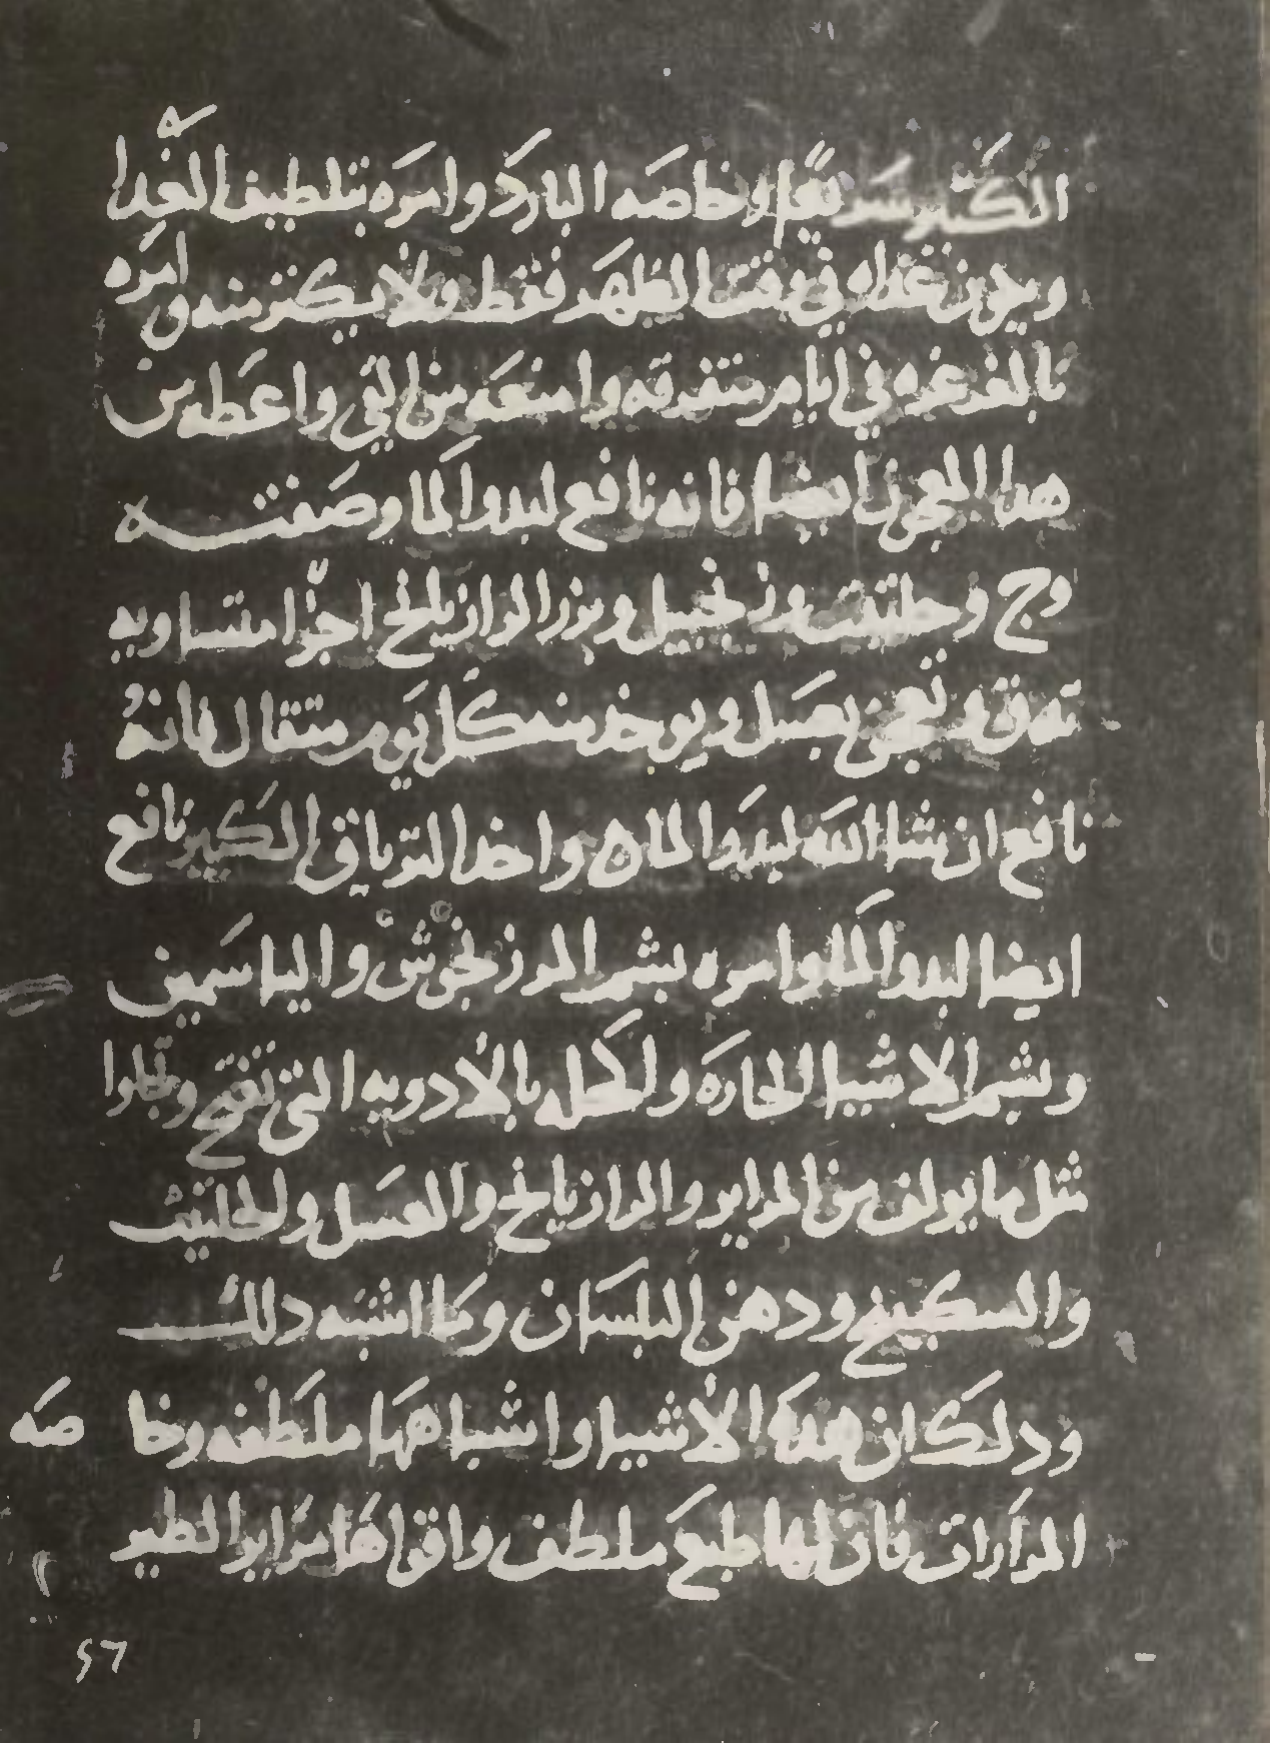 الكثير سريعا وخاصه البارد وامره بتلطيف الغدا
ويكون غداه في وقت الظهر فقط ولا يكثر منه وامره
بالغرغره في ايام متفرقه وامنعه من القي واعطه من
هدا المعجون ايضا فانه نافع لبدو الما وصفته
وج وحلتيت وزنجبيل وبزر الرازيانج اجزا متساويه
تدق وتعجن بعسل ويوخد منه كل يوم مثقال فانه
نافع ان شا الله لبدو الماه واخد الترياق الكبير نافع
ايضا لبدو الما وامره بشم المرزنجوش والياسمين
وبشم الاشيا الحاره ولكحله بالادويه التي تفتح وتجلوا
مثل ما يولف من المراير والرازيانج والعسل ولحلتيت
والسكبينج ودهن البلسان وما اشبه دلك
ودلك ان هده الاشيا واشباهها ملطفه وخا صه
المرارات فان لها طبع ملطف واقواها مراير الطير
٢٦